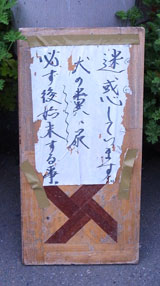 迷惑しています
犬の糞、尿
必ず後始末する事